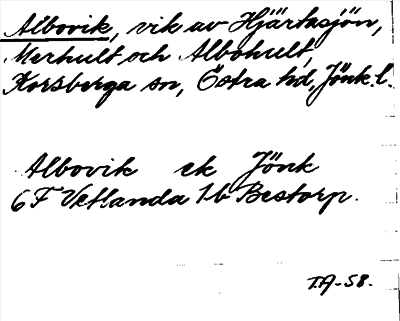 Albovik, vik av Hjärtasjön,
Merhult och Albohult,
Korsberga sn, Östra hd, Jönk. l.
Albovik ek Jönk
6 F Vetlanda 1 b Bestorp.
I.A-58.